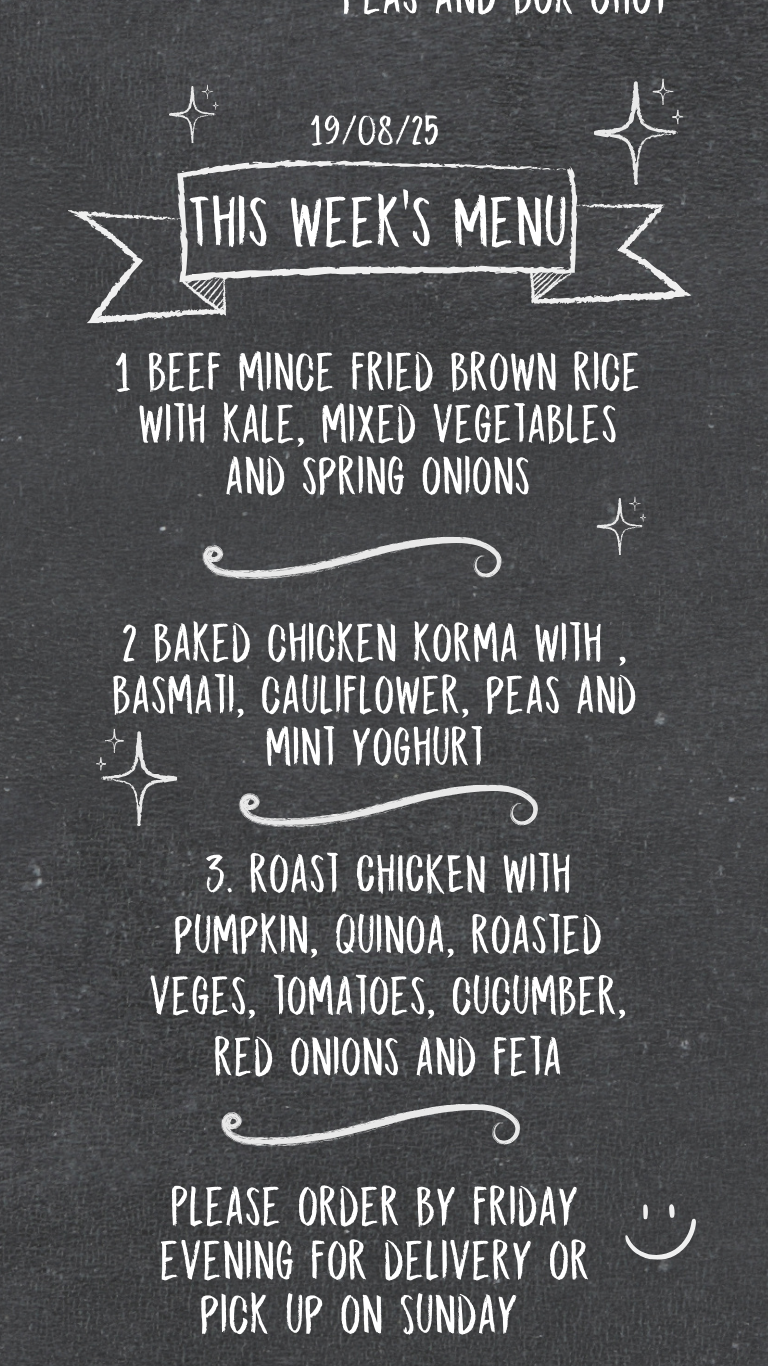 PEAS AND BOK CHOY
19/08/25
THIS WEEK'S MENU
1 BEEF MINCE FRIED BROWN RICE
WITH KALE, MIXED VEGETABLES
AND SPRING ONIONS
2 BAKED CHICKEN KORMA WITH ,
BASMATI, CAULIFLOWER, PEAS AND
MINT YOGHURT
3. ROAST CHICKEN WITH
PUMPKIN, QUINOA, ROASTED
VEGES, TOMATOES, CUCUMBER,
RED ONIONS AND FETA
PLEASE ORDER BY FRIDAY
EVENING FOR DELIVERY OR
PICK UP ON SUNDAY